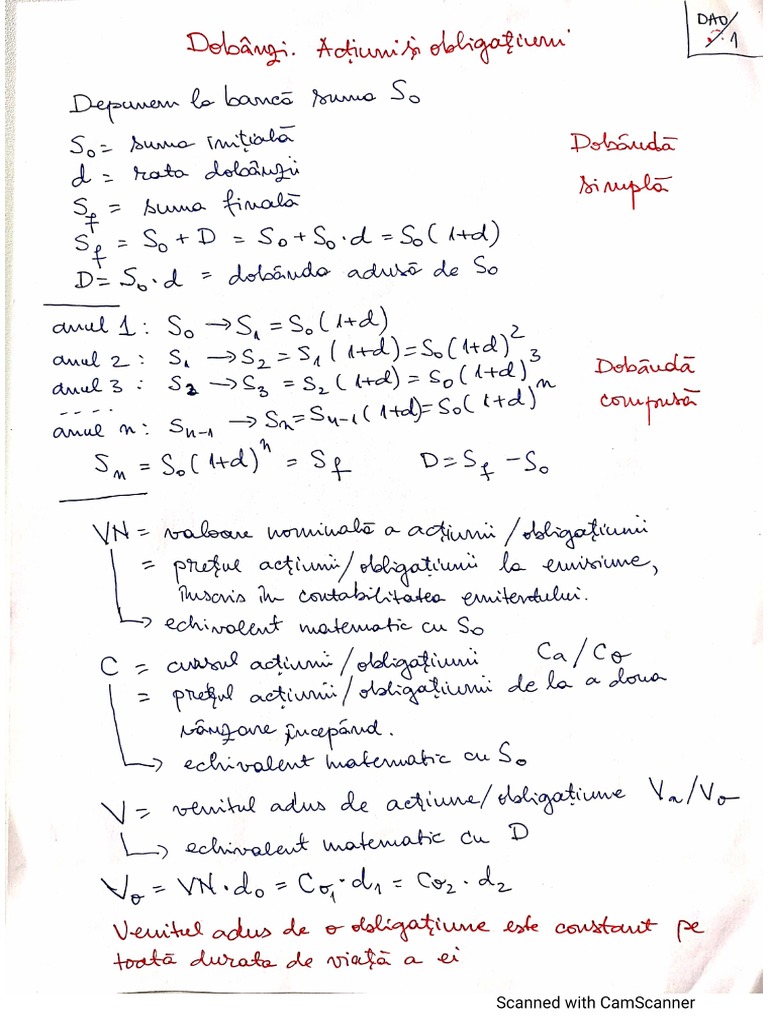 DAO/
1
Dobânzi. Acţiuni şi obligaţiuni
Depunem la bancă suma S₀
S₀ = suma iniţială
d = rata dobânzii
S_f = suma finală
S_f = S₀ + D = S₀ + S₀·d = S₀(1+d)
D = S₀·d = dobânda adusă de S₀
Dobândă
simplă
anul 1: S₀ → S₁ = S₀(1+d)
anul 2: S₁ → S₂ = S₁(1+d) = S₀(1+d)²
anul 3: S₂ → S₃ = S₂(1+d) = S₀(1+d)³
-----
anul n: Sₙ₋₁ → Sₙ = Sₙ₋₁(1+d) = S₀(1+d)ⁿ
Sₙ = S₀(1+d)ⁿ = S_f D = S_f - S₀
Dobândă
compusă
VN = valoare nominală a acţiunii/obligaţiunii
= preţul acţiunii/obligaţiunii la emisiune,
înscris în contabilitatea emitentului.
↳ echivalent matematic cu S₀
C = cursul acţiunii/obligaţiunii Ca/Co
= preţul acţiunii/obligaţiunii de la a doua
vânzare începând.
↳ echivalent matematic cu S₀
V = venitul adus de acţiune/obligaţiune Va/Vo
↳ echivalent matematic cu D
Vo = VN·d₀ = Co₁·d₁ = Co₂·d₂
Venitul adus de o obligaţiune este constant pe
toată durata de viaţă a ei
Scanned with CamScanner